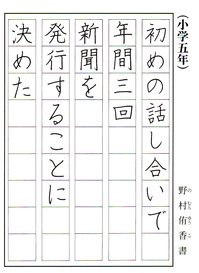 （小学五年）
初めの話し合いで
年間三回
新聞を
発行することに
決めた
野村侑香書